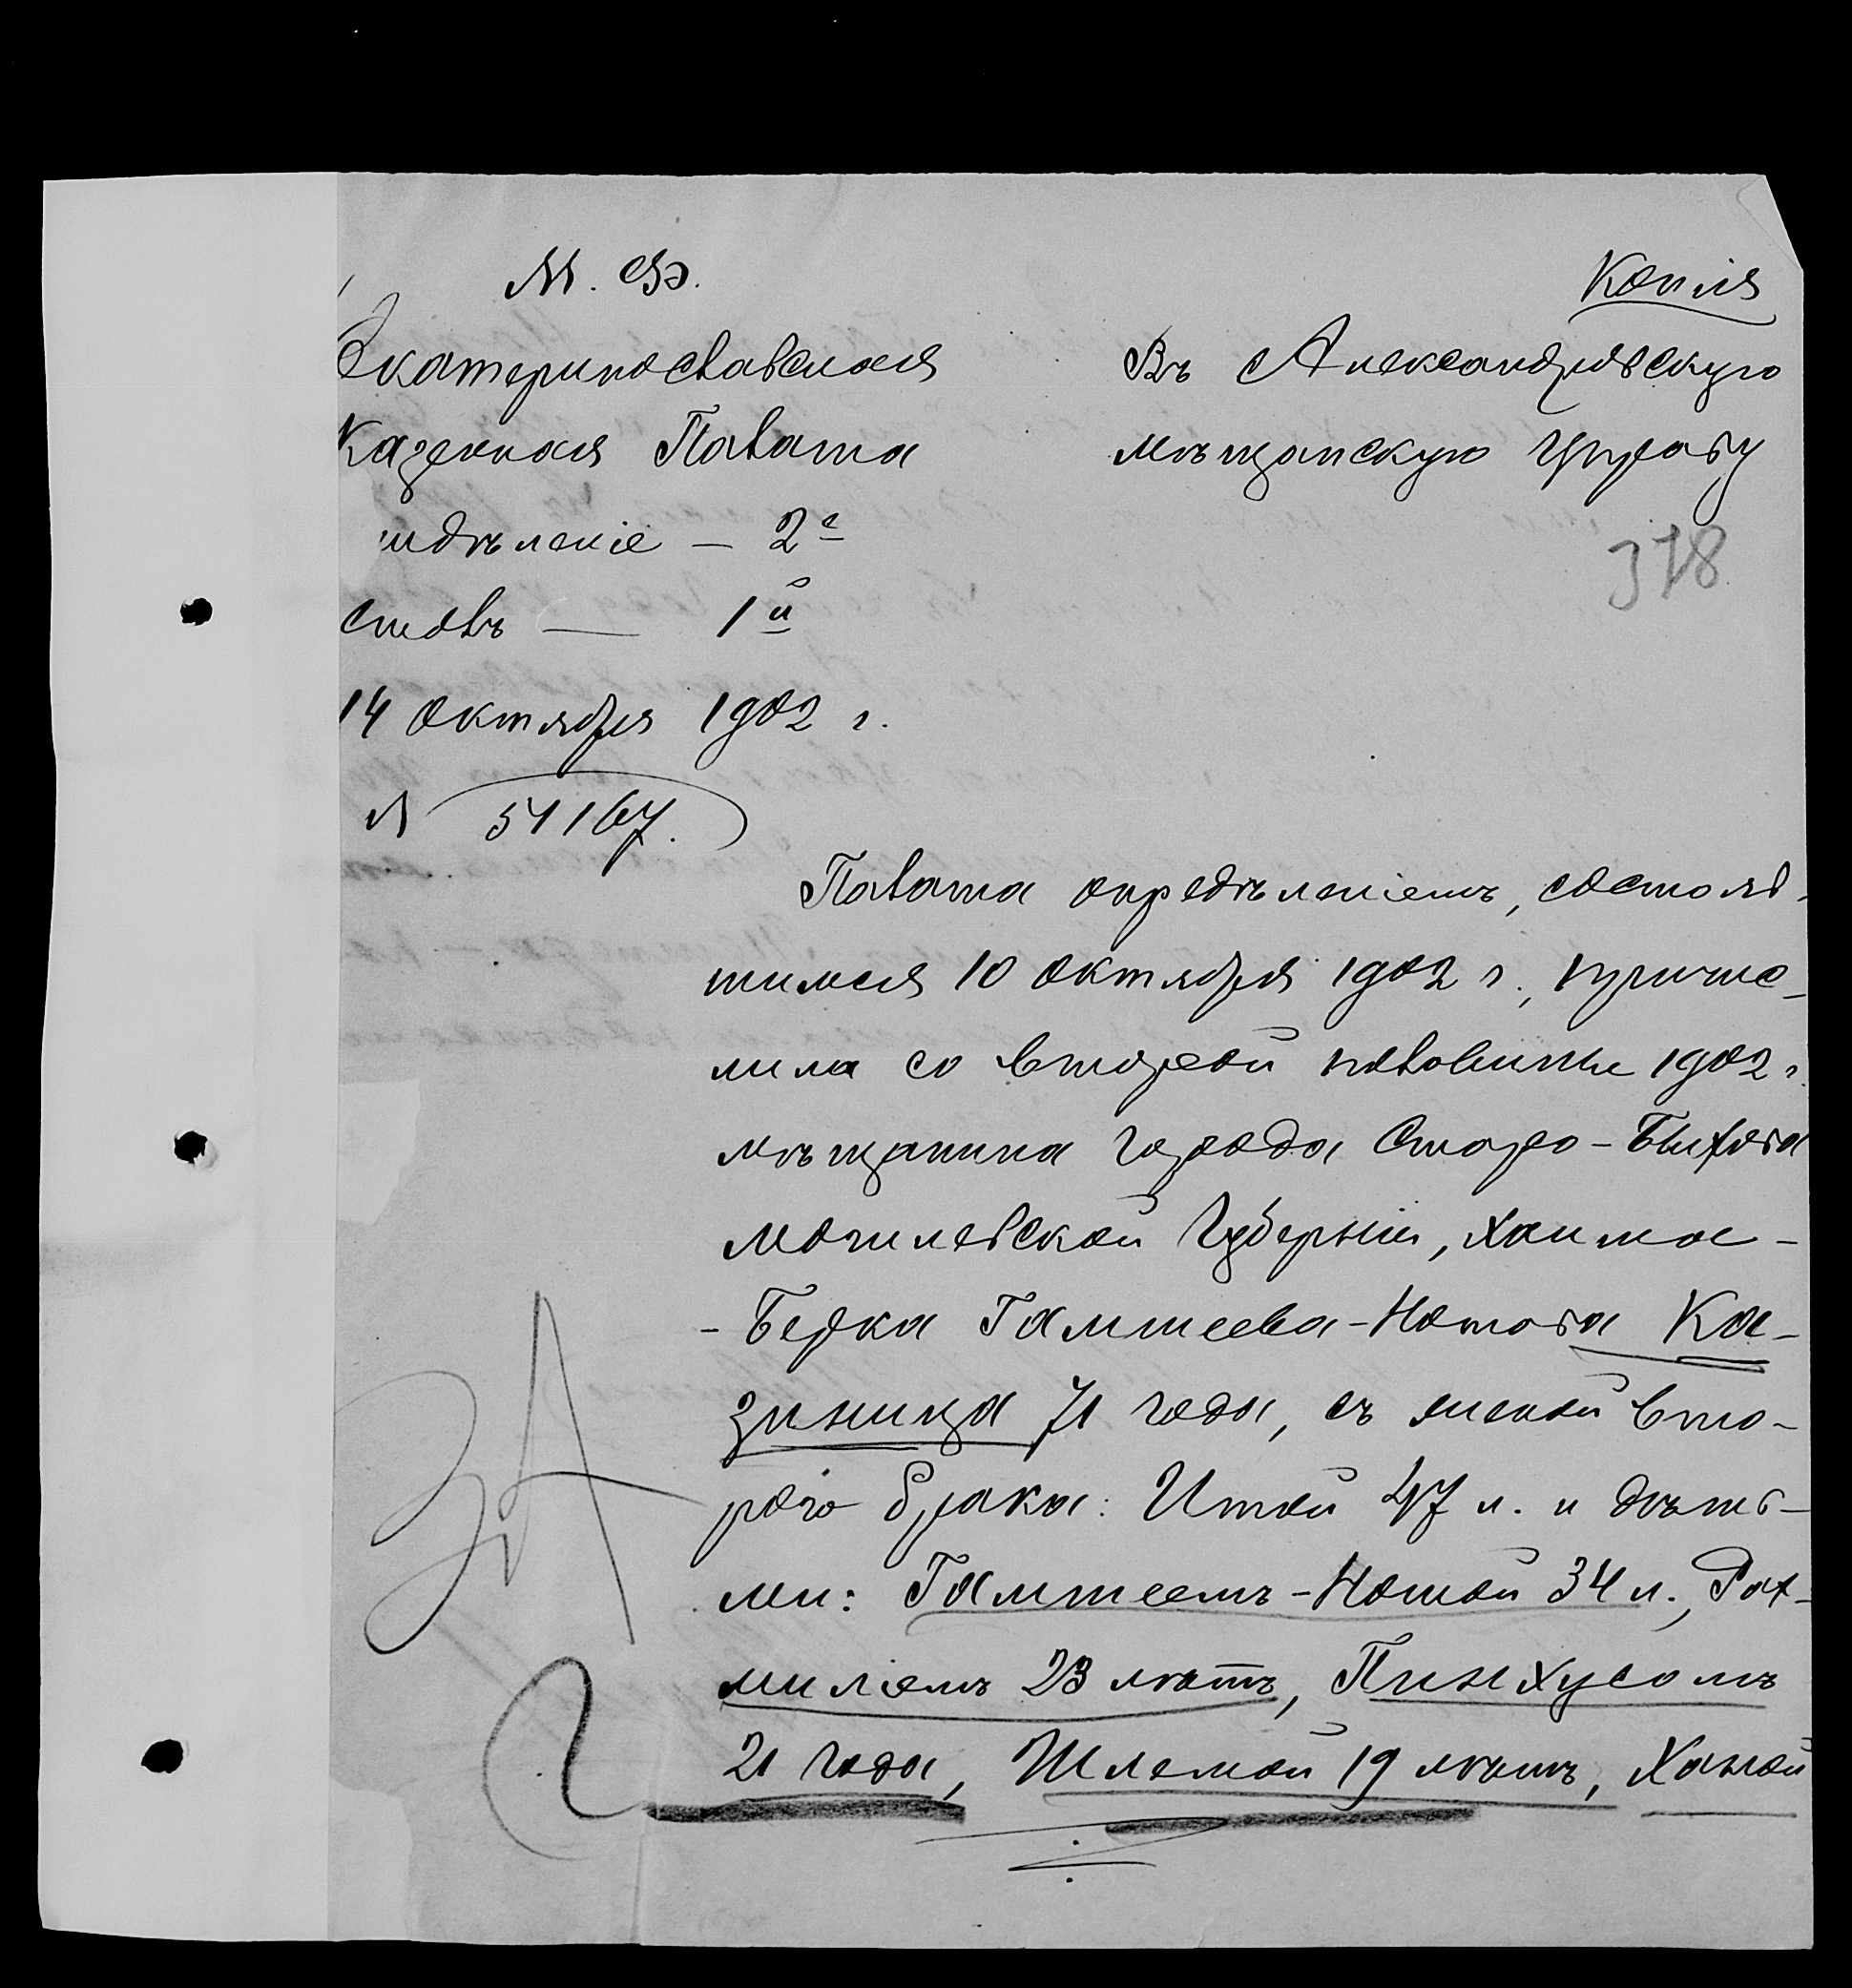 М. Ф.
Копія
Екатеринославская
Казенная Палата
тдѣленіе — 2е
столъ — 1й
14 Октября 1902 г.
№ 51167.
Въ Александровскую
мѣщанскую Управу
378
Палата опредѣленіемъ, состояв-
шимся 10 Октября 1902 г., причис-
лила со второй половины 1902 г.
мѣщанина города Старо-Быхова
Могилевской Губерніи, Хаима-
-Берка Гамшеева-Нотова Ка-
зиница 71 года, съ женой вто-
рого брака: Итой 47 л. и дѣть-
ми: Гамшеемъ-Нотой 34 л., Рах-
миліемъ 23 лѣтъ, Пинхусомъ
21 года, Шлемой 19 лѣтъ, Ханой